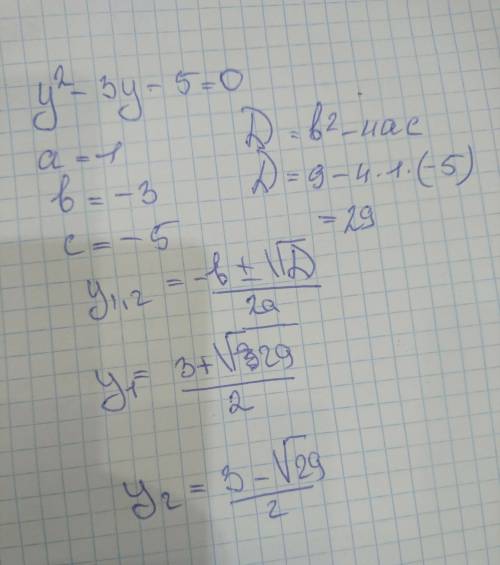 y² - 3y - 5 = 0
a = 1
b = -3
c = -5
D = b² - 4ac
D = 9 - 4 · 1 · (-5)
= 29
y₁,₂ = -b ± √D / 2a
y₁ = 3 + √29 / 2
y₂ = 3 - √29 / 2